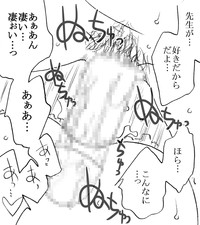 先生が…
好きだから
だよ…
ぬちゅっ
ぬちゅっ
ああん
凄い…
凄おい…っ
ああぁ…
ほら…
こんなに
…っ
ぬちゅっ
ぬちゅっ